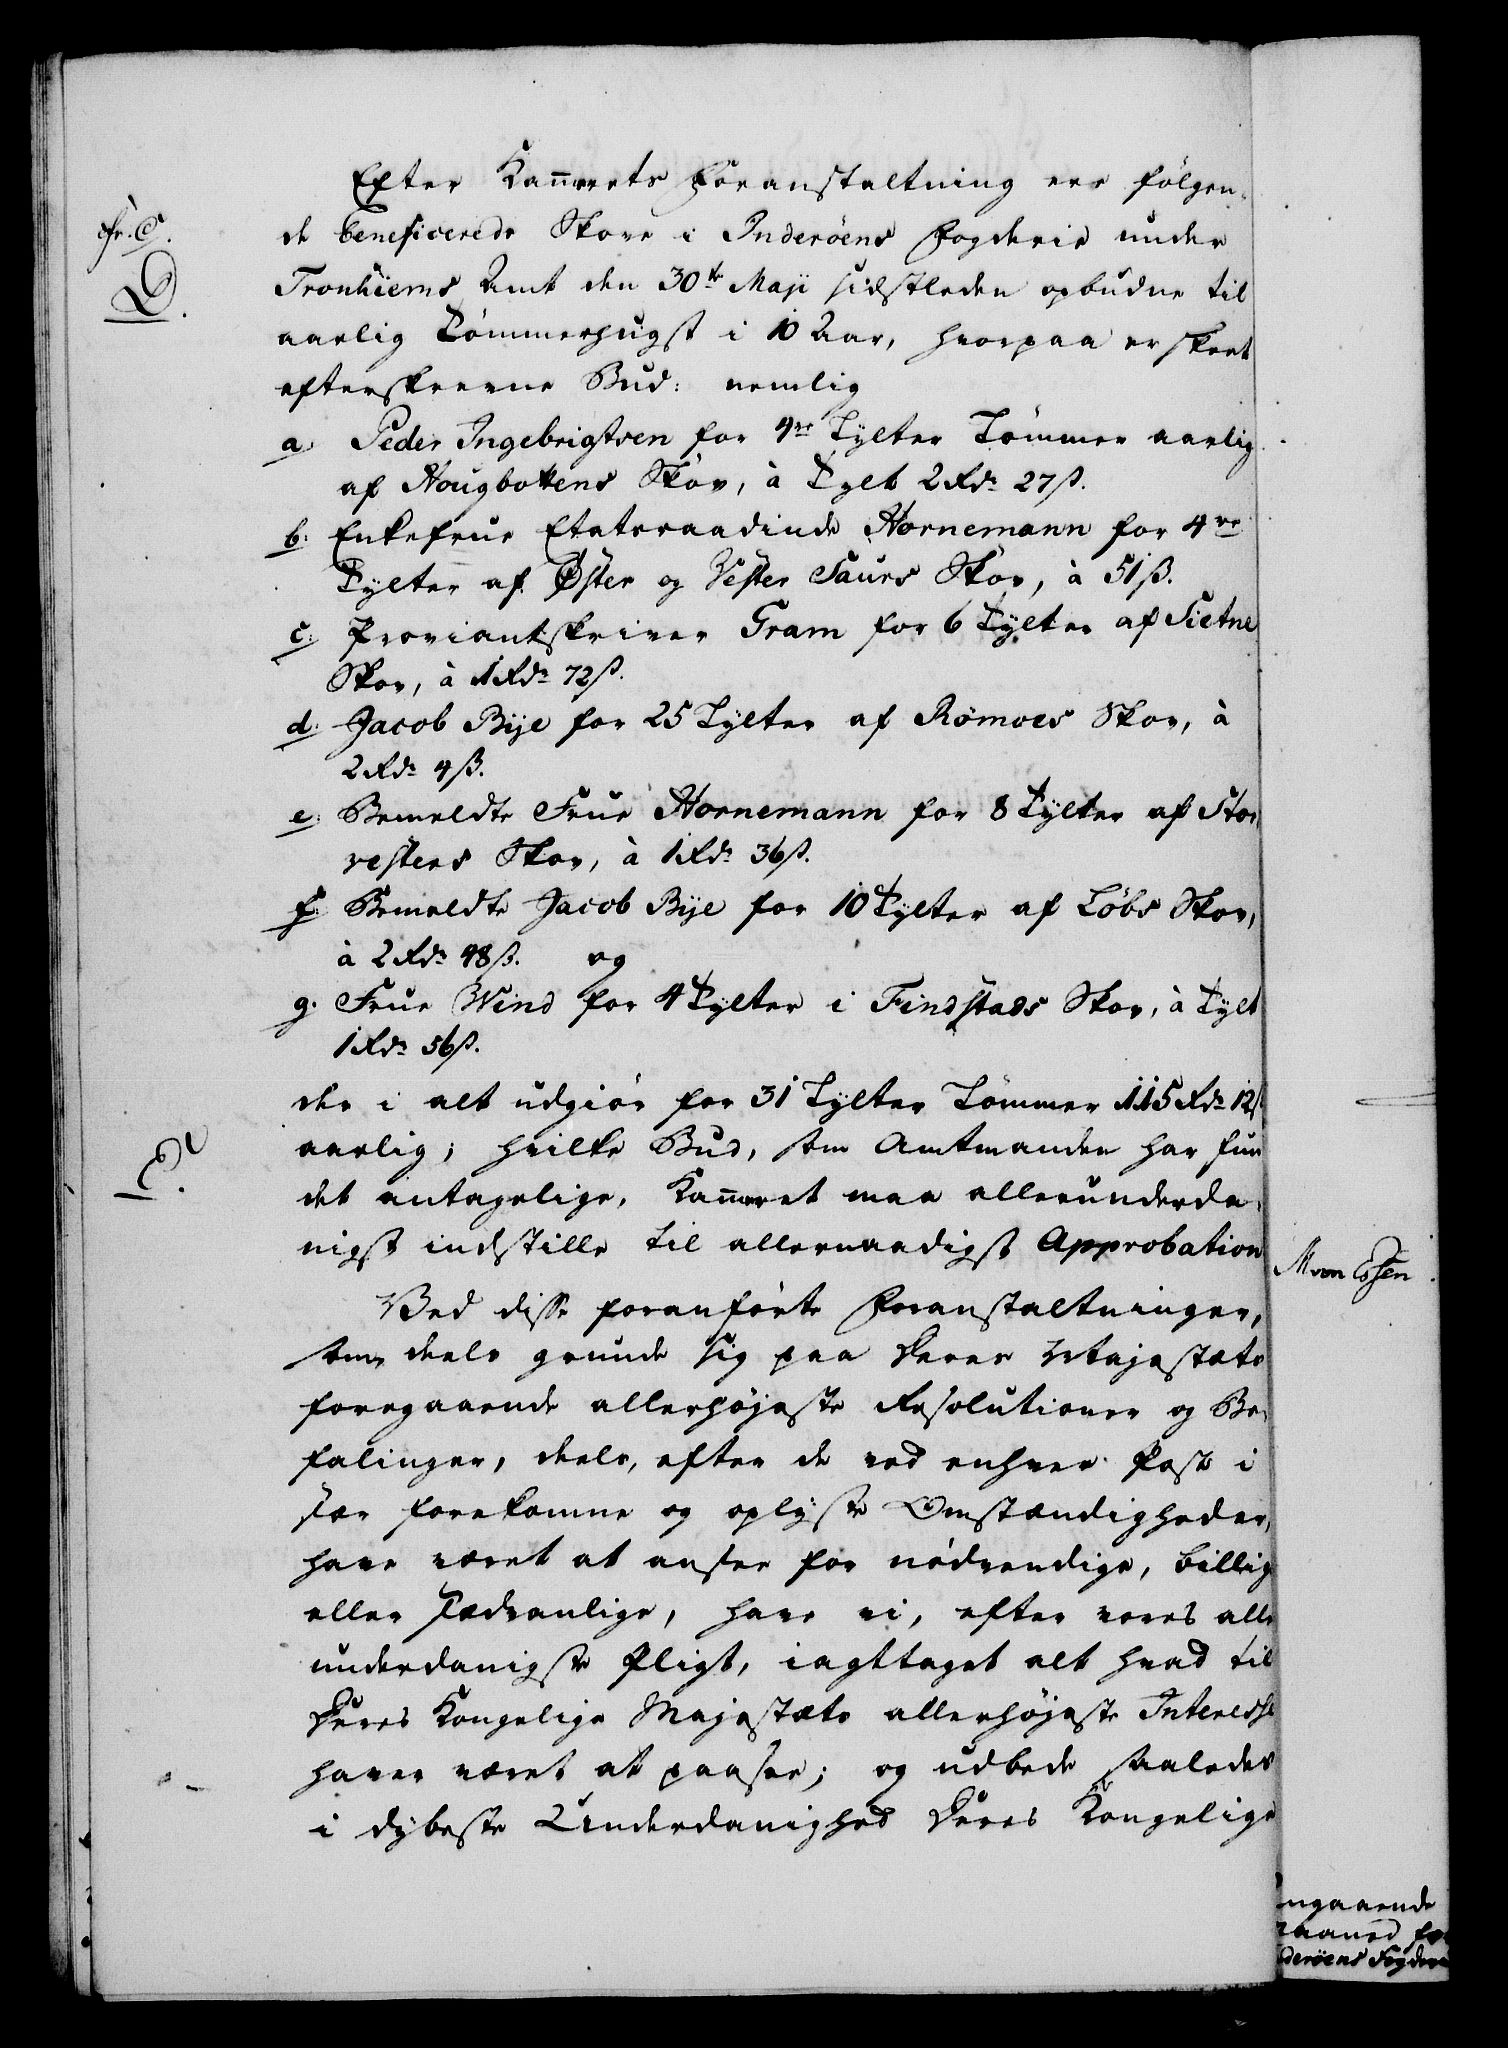 fr. C.
D.
Efter Kammerets Foranstaltning ere følgen-
de beneficerede Skove i Inderöens Fogderie under
Tronhiems Amt den 30te Maji sidstleden opbudne til
aarlig Tömmerhugst i 10 Aar, hvorpaa er skeet
efterskrevne Bud: nemlig
a. Peder Ingebrigtsen for 4re Tylter Tömmer aarlig
af Hougbottens Skov, à Tylt 2 Rdr 27 ß.
b. Enkefrue Etatsraadinde Hornemann for 4re
Tylter af Øster og Vester Saurs Skov, à 51 ß.
c. Proviantskriver Gram for 6 Tylter af Sietne
Skov, à 1 Rdr 72 ß.
d. Jacob Bije for 25 Tylter af Römoes Skov, à
2 Rdr 4 ß.
e. Bemeldte Frue Hornemann for 8 Tylter af Stor-
vesters Skov, à 1 Rdr 36 ß.
f. Bemeldte Jacob Bije for 10 Tylter af Löbs Skov,
à 2 Rdr 48 ß. og
g. Frue Wind for 4 Tylter i Findstads Skov, à Tylt
1 Rdr 56 ß.
der i alt udgiör for 31 Tylter Tömmer 115 Rdr 12 ß
aarlig; hvilke Bud, som Amtmanden har fun
det antagelige, Kammeret maa allerunderda-
nigst indstille til allernaadigst Approbation
E.
Ved disse foranförte Foranstaltninger,
som deels grunde sig paa Deres Majestæts
foregaaende allerhöjeste Resolutioner og Be-
falinger, deels, efter de ved enhver Post i
sær forekomne og oplyste Omstændigheder,
have været at ansee for nödvendige, billige
eller sædvanlige, have vi, efter vores aller
underdanigste Pligt, iagttaget alt hvad til
Deres Kongelige Majestæts allerhöjeste Interesse
haver været at paasee; og udbede saaledes
i dybeste Underdanighed Deres Kongelige
M von Essen
ngaaende
maaned for
deröens Fogderie